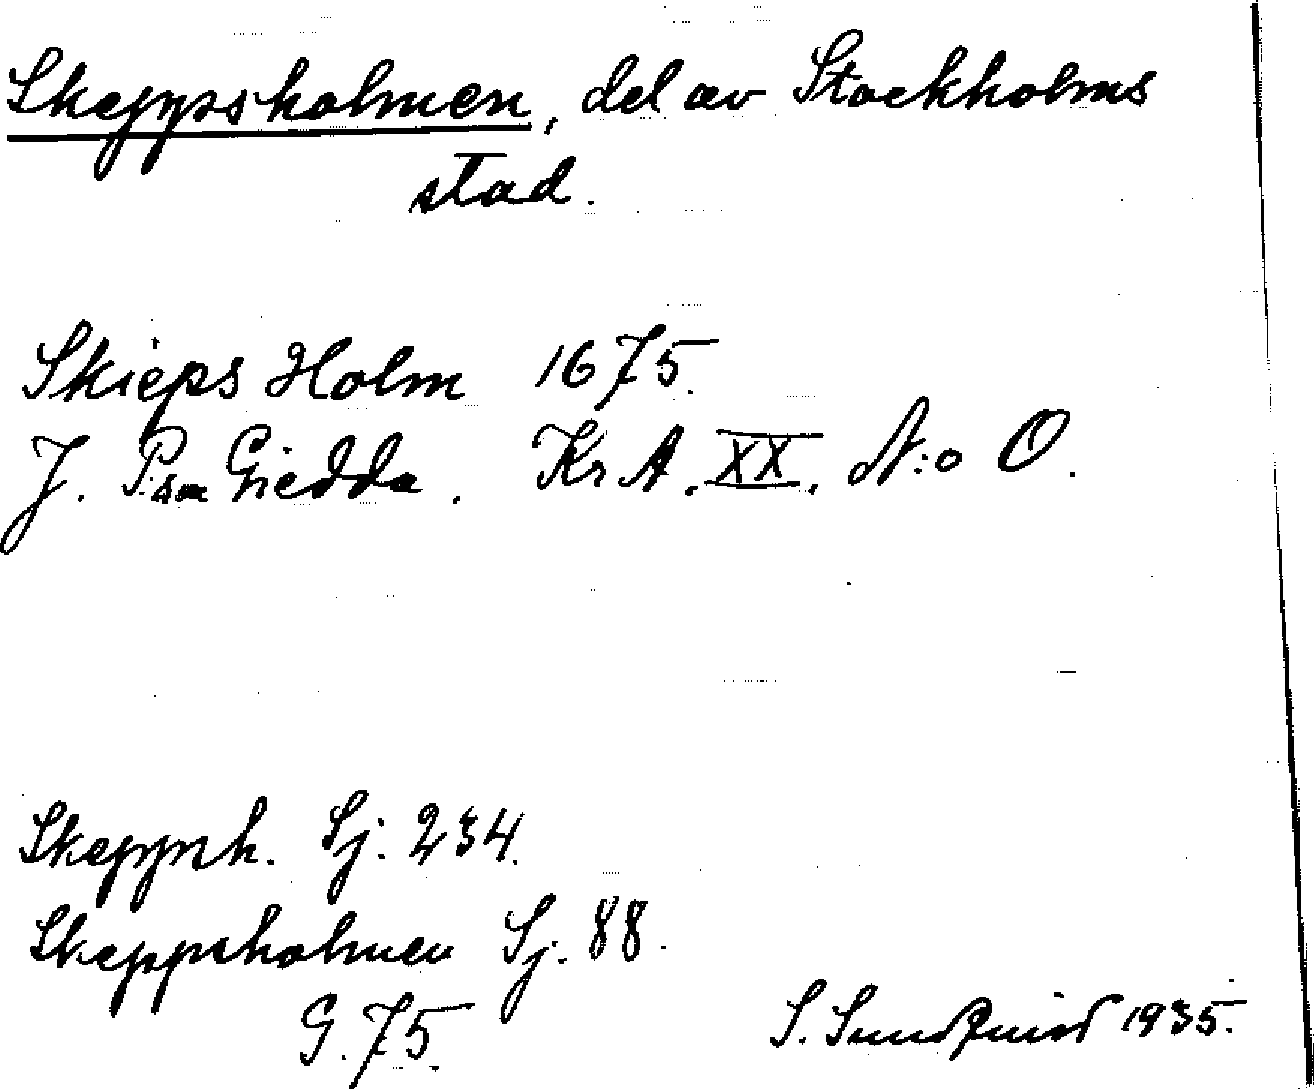 Skeppsholmen, del av Stockholms
stad.
Skieps Holm 1675.
J. P:son Giedda. Kr A. XX. N:o O.
Skeppsh. Sj. 234.
Skeppsholmen Sj. 88.
G. 75.
S. Sundquist 1935.